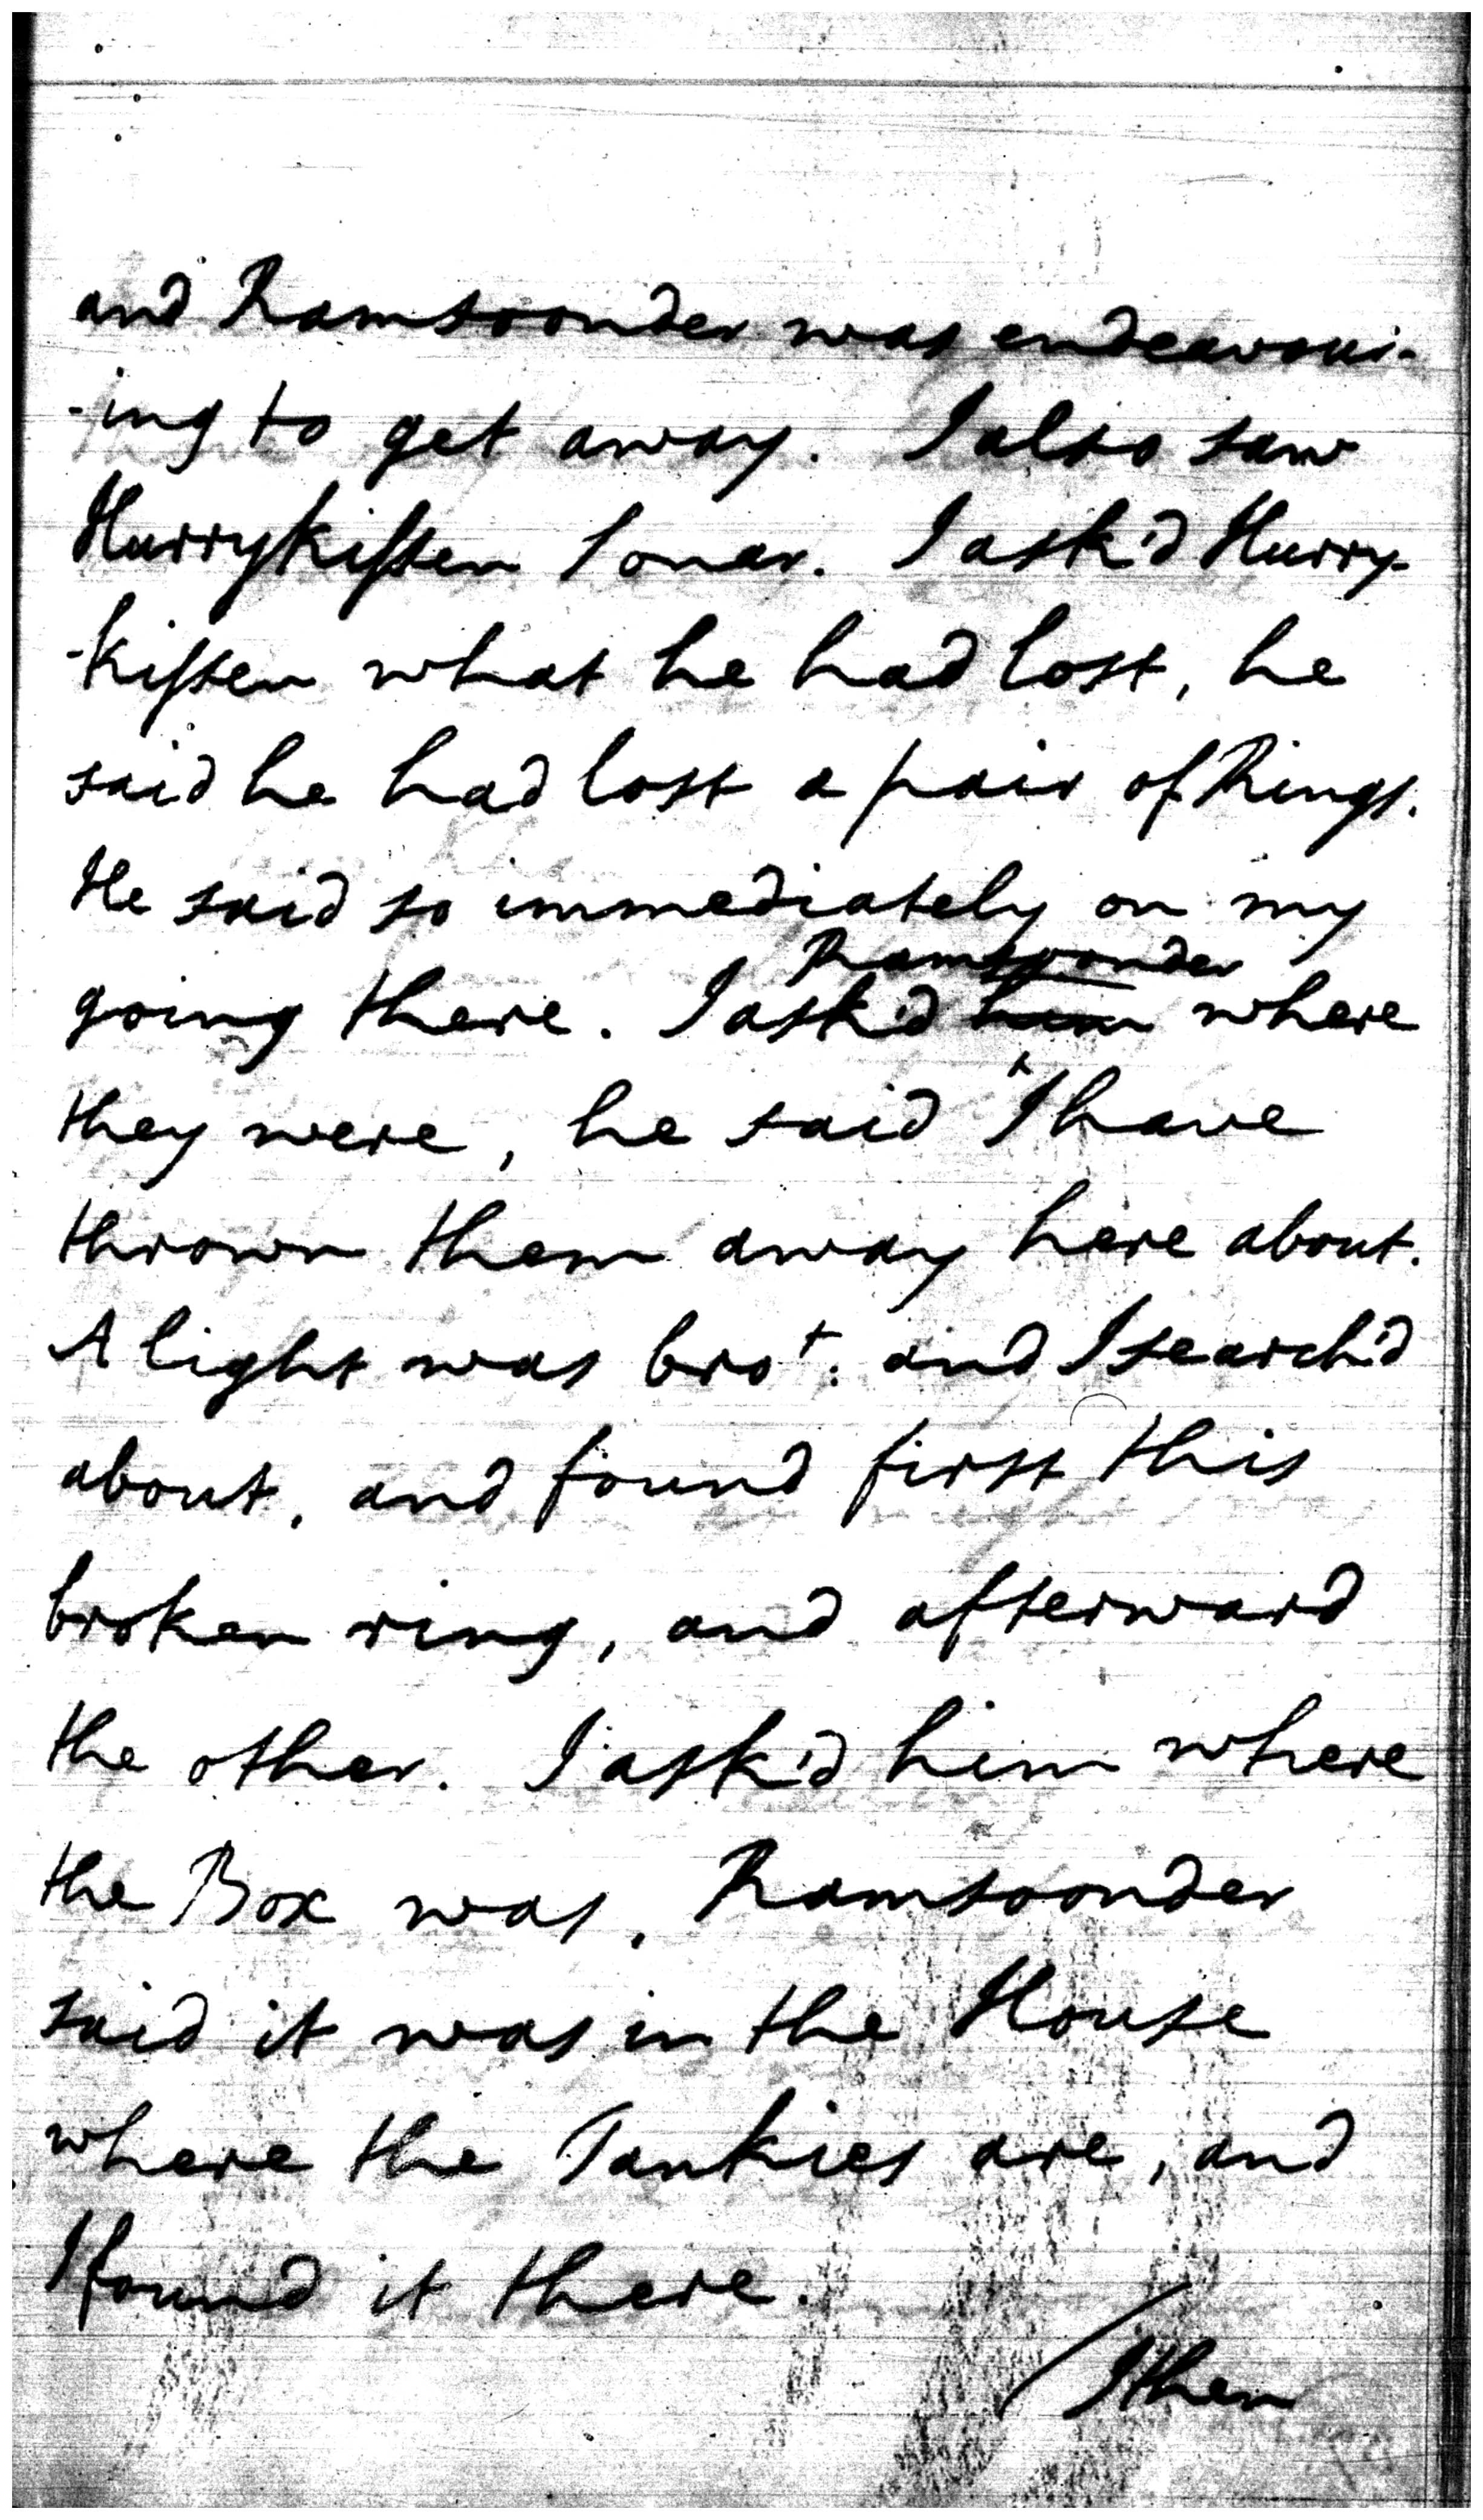 and Ramsoonder was endeavour-
-ing to get away. I also saw
Hurrykissen Sonar. I ask'd Hurry-
-kissen what he had lost, he
said he had lost a pair of Rings.
He said so immediately on my
Ramsoonder
going there. I ask'd him where
they were, he said "I have
thrown them away here about.
A light was bro't: and I search'd
about, and found first this
broken ring, and afterward
the other. I ask'd him where
the Box was, Ramsoonder
said it was in the House
where the Tankies are, and
I found it there.
I then